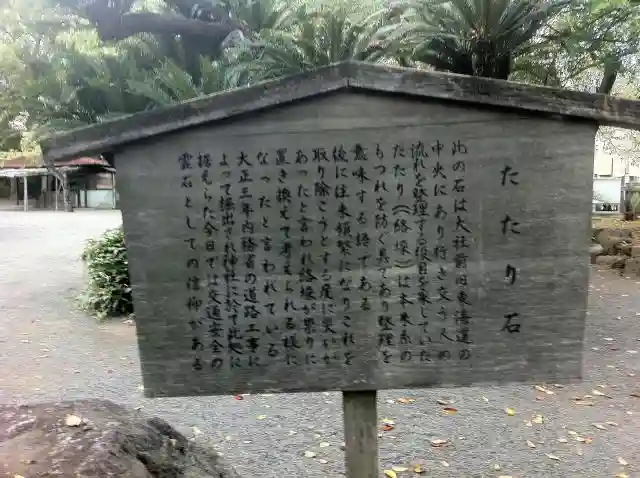 たたり石
此の石は大社前旧東海道の
中央にあり行き交う人の
流れを整理する役目を果していた
たたり(絡垜)は本来糸の
もつれを防ぐ具であり整理を
意味する語である
後に往来頻繁になりこれを
取り除こうとする度に災いが
あったと言われ絡垜が祟りに
置き換えて考えられる様に
なったと言われている
大正三年内務省の道路工事に
よって掘出され神社に於て此処に
据えられた今日では交通安全の
霊石としての信仰がある